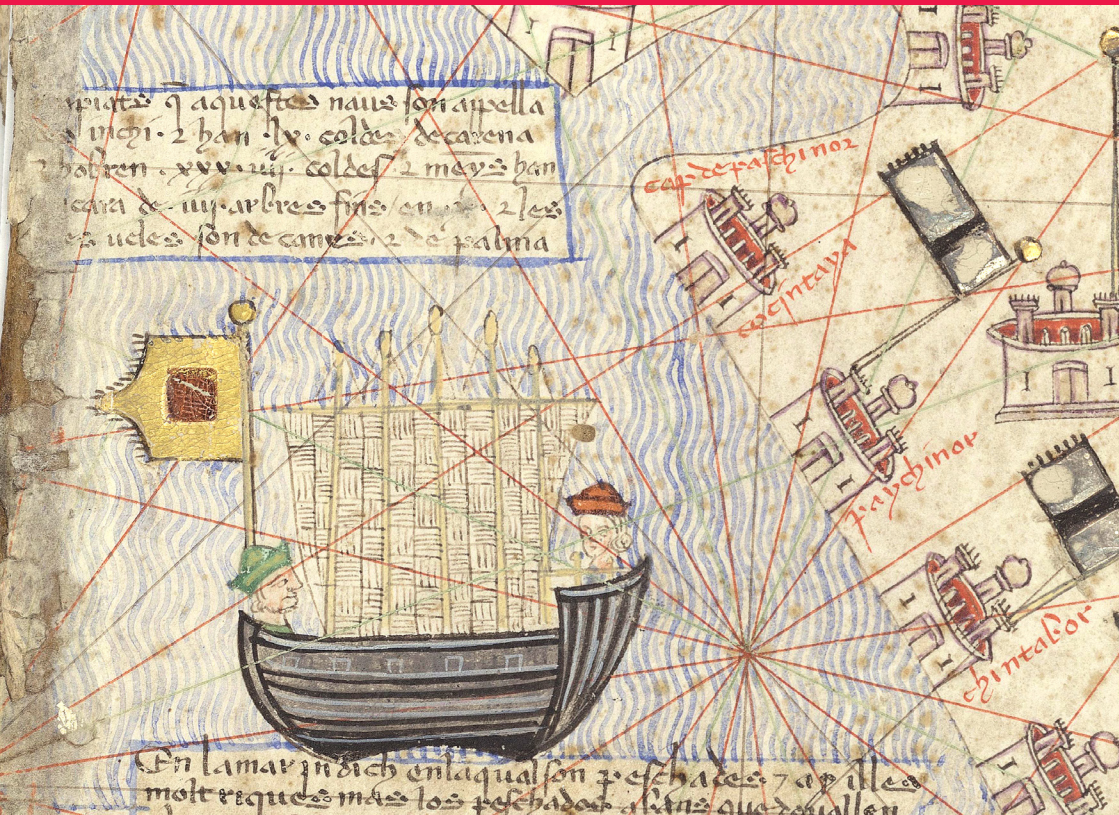 piats q̄ aquestes naus son appella
inchi · ⁊ han · lx · coldes de carena
obren · xxxiiij · coldes · ⁊ meys han
cara de · iiij · arbres fins en · ⁊ les
ueles son de canes · ⁊ de palma
cap de paschinor
cocintaya
paychinor
chintabor
En la mar indich en la qual son peschades ⁊ ay illes
molt riques mas los peschados abans que deuallen